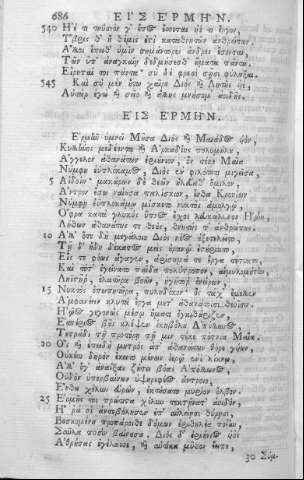 686 ΕΙΣ ἙΡΜΗΝ.
540 Ἠέ τι τηΰσιον γ' ἔπος ἔσσεται ἠέ τι ἔργον,
Ὕβρις θ' ἣ θέμις ἐστὶ καταθνητῶν ἀνθρώπων·
Ἄλλοι ἔπειθ' ὑμῖν σημάντορες ἄνδρες ἔσονται,
Τῶν ὑπ' ἀναγκαίῃ δεδμήσεσθ' ἤματα πάντα.
Εἴρηταί τοι πάντα· σὺ δὲ φρεσὶ σῇσι φύλαξαι.
545 Καὶ σὺ μὲν οὕτω χαῖρε Διὸς καὶ Λητοῦς υἱέ,
Αὐτὰρ ἐγὼ καὶ σεῖο καὶ ἄλλης μνήσομ' ἀοιδῆς.
ΕΙΣ ἙΡΜΗΝ.
Ἑρμῆν ὕμνει Μοῦσα Διὸς καὶ Μαιάδος υἱόν,
Κυλλήνης μεδέοντα καὶ Ἀρκαδίης πολυμήλου,
Ἄγγελον ἀθανάτων ἐριούνιον, ὃν τέκε Μαῖα
Νύμφη ἐϋπλόκαμος, Διὸς ἐν φιλότητι μιγεῖσα,
5 Αἰδοίη· μακάρων δὲ θεῶν ἠλεύαθ' ὅμιλον,
Ἄντρον ἔσω ναίουσα παλίσκιον, ἔνθα Κρονίων
Νύμφῃ ἐϋπλοκάμῳ μισγέσκετο νυκτὸς ἀμολγῷ,
Ὄφρα κατὰ γλυκὺς ὕπνος ἔχοι λευκώλενον Ἥρην,
Λήθων ἀθανάτους τε θεούς, θνητούς τ' ἀνθρώπους.
10 Ἀλλ' ὅτε δὴ μεγάλοιο Διὸς νόος ἐξετελεῖτο,
Τῇ δ' ἤδη δέκατος μεὶς οὐρανῷ ἐστήρικτο,
Εἴς τε φόως ἄγαγεν, ἀρίσημά τε ἔργα τέτυκτο,
Καὶ τότ' ἐγείνατο παῖδα πολύτροπον, αἱμυλομήτην,
Ληϊστῆρ', ἐλατῆρα βοῶν, ἡγήτορ' ὀνείρων,
15 Νυκτὸς ὀπωπητῆρα, πυληδόκον· ὃς τάχ' ἔμελλεν
Ἀμφανέειν κλυτὰ ἔργα μετ' ἀθανάτοισι θεοῖσι.
Ἠῷος γεγονὼς μέσῳ ἤματι ἐγκιθάριζεν,
Ἑσπέριος βοῦς κλέψεν ἑκηβόλου Ἀπόλλωνος,
Τετράδι τῇ προτέρῃ τῇ μιν τέκε πότνια Μαῖα.
20 Ὃς καὶ ἐπειδὴ μητρὸς ἀπ' ἀθανάτων θόρε γυίων,
Οὐκέτι δηρὸν ἔκειτο μένων ἱερῷ ἐνὶ λίκνῳ,
Ἀλλ' ὅγ' ἀναΐξας ζήτει βόας Ἀπόλλωνος,
Οὐδὸν ὑπερβαίνων ὑψηρεφέος ἄντροιο,
Ἔνθα χέλυν εὑρών, ἐκτήσατο μυρίον ὄλβον·
25 Ἑρμῆς τοι πρώτιστα χέλυν τεκτήνατ' ἀοιδόν,
Ἥ ῥά οἱ ἀντεβόλησεν ἐπ' αὐλείῃσι θύρῃσι,
Βοσκομένη προπάροιθε δόμων ἐριθηλέα ποίην,
Σαῦλα ποσὶν βαίνουσα. Διὸς δ' ἐριούνιος υἱὸς
Ἀθρήσας ἐγέλασσε, καὶ αὐτίκα μῦθον ἔειπε,
30 Σύμ-